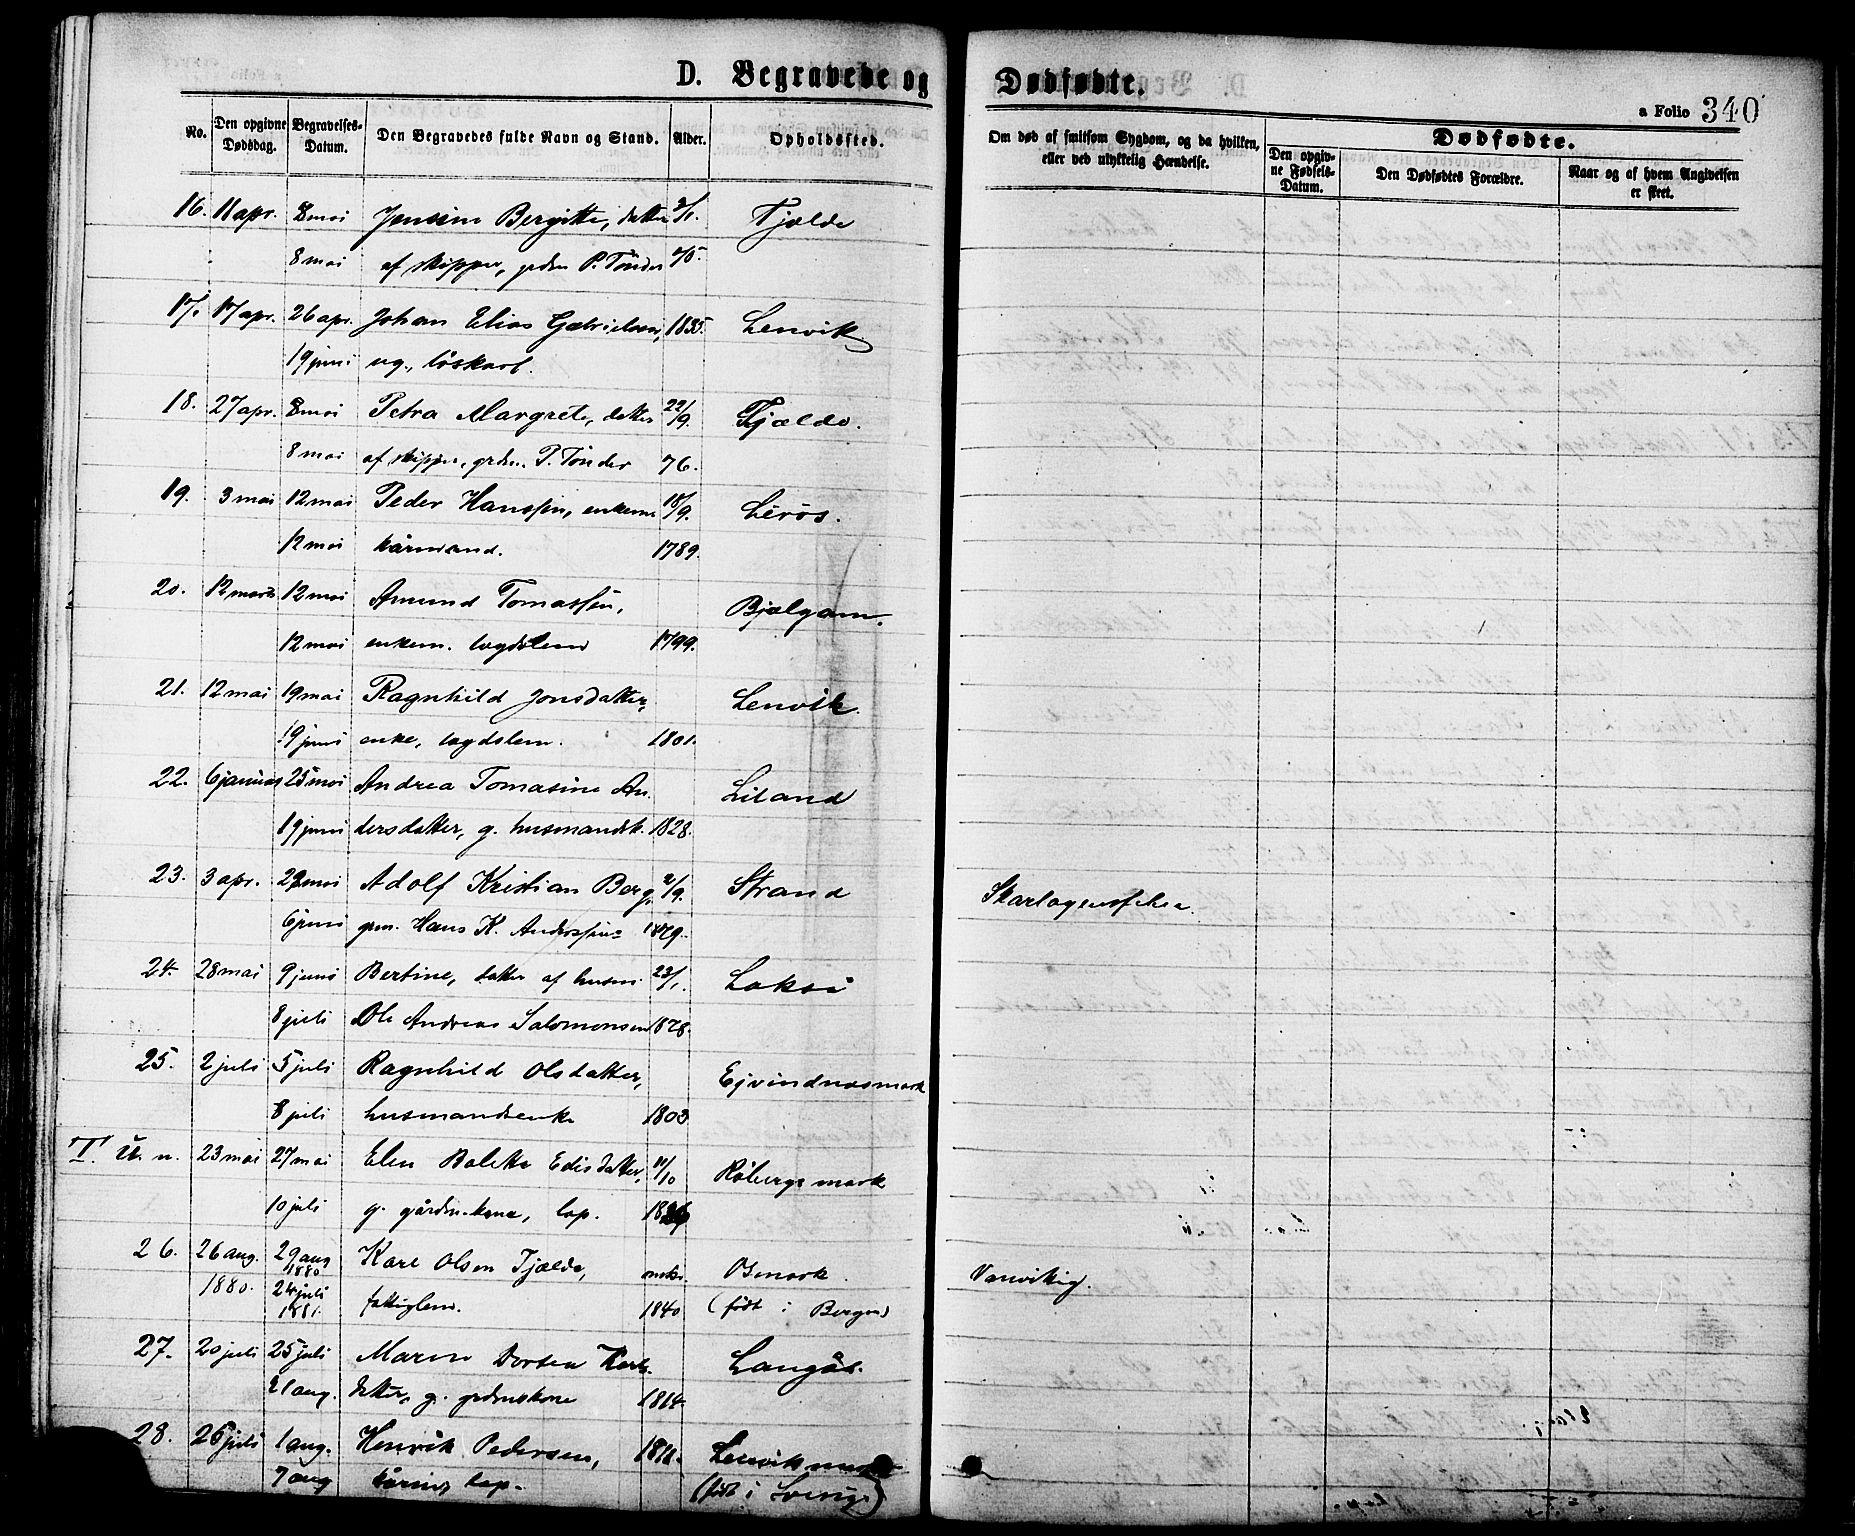 D. Begravede og Dødfødte.
a Folio 340
No. Den opgivne Dødsdag. Begravelses-Datum. Den Begravedes fulde Navn og Stand. Alder. Opholdssted. Om død af smitsom Sygdom, og da hvilken, eller ved ulykkelig Hændelse. Dødfødte.
Den opgivne Fødsels-Datum. Den Dødfødtes Forældre. Naar og af hvem Angivelsen er skeet.
16. 11 apr. 8 mai Jensine Bergitte, datter Fjælde
8 mai af skipper, grdm. P. Tönder
17. 17 apr. 26 apr. Johan Elias Gabrielsen, 1835. Lenvik
19 juni ug., löskarl.
18. 27 apr. 8 mai Petra Margrete, datter 22/9. Fjælde.
8 mai af skipper, grdm. P. Tönder 76.
19. 3 mai 12 mai Peder Hanssen, enkem. 18/9. Lerös.
12 mai kårmand. 1789.
20. 12 marts 12 mai Amund Tomassen, Bjælgam.
12 mai enkem. lægdslem 1799.
21. 12 mai 19 mai Ragnhild Jonsdatter, Lenvik.
19 juni enke, lægdslem. 1801.
22. 6 januar 25 mai Andrea Tomasine An- Liland
19 juni dersdatter, g. husmandsk. 1828.
23. 3 apr. 29 mai Adolf Kristian Berg, 2/9. Strand Skarlagensfeber.
6 juni grm. Hans K. Anderssens 1879.
24. 28 mai 9 juni Bertine, datter af husm. 23/1. Lakså
8 juli Ole Andreas Salomonsen 1878.
25. 2 juli 5 juli Ragnhild Olsdatter, Ejvindnæsmark
8 juli husmandsenke 1803
T. U. n. 23 mai 27 mai Elen Baletta Edisdatter, 11/10 Råbergsmark
10 juli g. gårdm.kone, lap.
26. 26 aug. 29 aug 1880 Karl Olsen Fjælde, Osmark. Vanvittig.
1880. 24 juli 1881. fattiglem. 1840 (födt i Bergen)
27. 20 juli 25 juli Maren Dortea Karls- Langås.
21 aug. datter, g. grdmskone 1814.
28. 26 juli 1 aug. Henrik Pedersen, 1811. Lenviksmark
7 aug kårm., lap. (födt i Sverige)